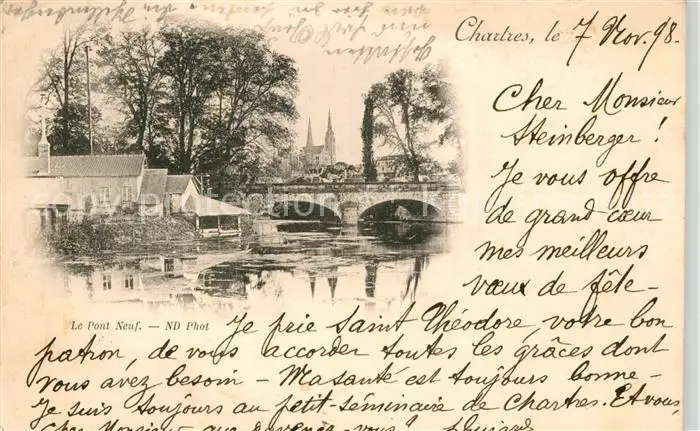 Chartres, le 7 Nov. 98.
Cher Monsieur
Steinberger !
Je vous offre
de grand cœur
mes meilleurs
vœux de fête-
Le Pont Neuf. — ND Phot
Je prie Saint Théodore, votre bon
patron, de vous accorder toutes les grâces dont
vous avez besoin - Ma santé est toujours bonne -
Je suis toujours au petit-séminaire de Chartres. Et vous,
cher Monsieur, que devenez-vous ?